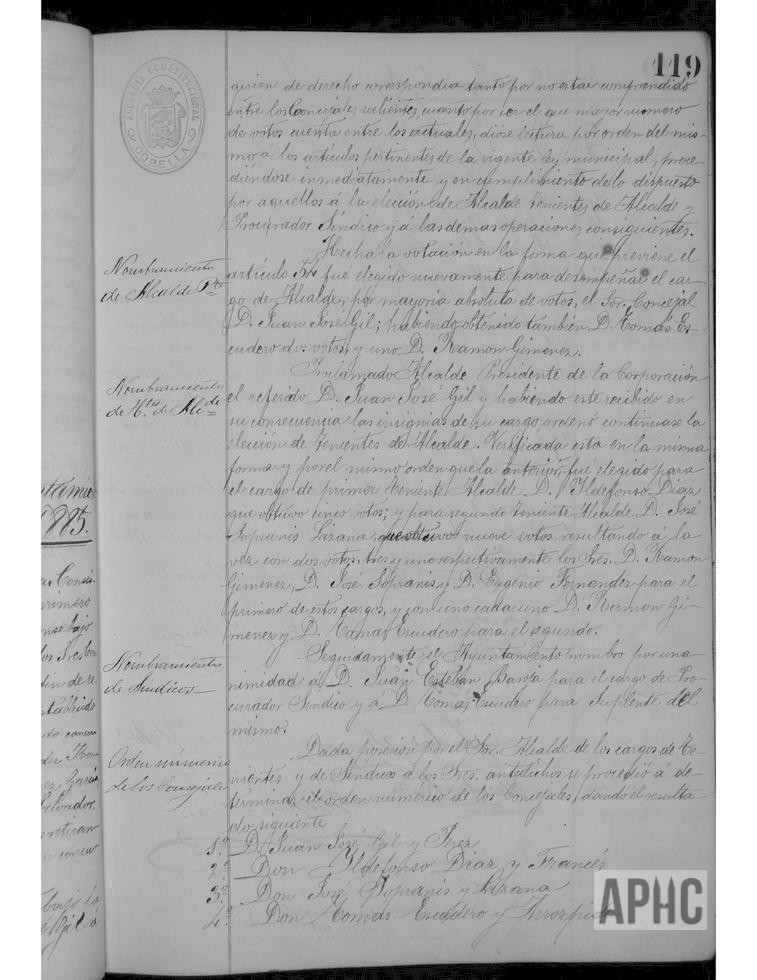 119
ALCALDIA CONSTITUCIONAL
CORELLA
quien de derecho correspondia tanto por no estar comprendido
entre los Concejales salientes, cuanto por ser el que mayor numero
de votos cuenta entre los actuales, diose lectura por orden del mis-
mo á los artículos pertinentes de la vigente ley municipal, proce-
diéndose inmediatamente y en cumplimiento de lo dispuesto
por aquellos á la elección de Alcalde Tenientes de Alcalde y
Procurador Síndico y á las demas operaciones consiguientes.
Nombramiento
de Alcalde Pte
Hecha la votación en la forma que previene el
artículo 54 fué elegido nuevamente para desempeñar el car-
go de Alcalde, por mayoria absoluta de votos, el Sor. Concejal
D. Juan José Gil; habiendo obtenido también D. Tomás Es-
cudero dos votos y uno D. Ramon Gimenez.
Nombramiento
de Ttes de Alcde
Proclamado Alcalde Presidente de la Corporación
el referido D. Juan José Gil y habiendo este recibido en
su consecuencia las insignias de su cargo ordenó continuase la
elección de Tenientes de Alcalde. Verificada esta en la misma
forma y por el mismo orden que la anterior, fue elegido para
el cargo de primer Teniente Alcalde D. Ildefonso Diaz,
que obtuvo cinco votos; y para segundo Teniente Alcalde D. José
Sopranis Lizana que obtuvo nueve votos, resultando á la
vez con dos votos, tres y uno respectivamente los Sres. D. Ramon
Gimenez, D. José Sopranis y D. Eugenio Fernandez para el
primero de estos cargos, y con uno cada uno D. Ramon Gi-
menez y D. Tomas Escudero para el segundo.
Nombramiento
de Sindicos
Seguidamente el Ayuntamiento nombró por una-
nimidad á D. Juan Esteban Baroja para el cargo de Pro-
curador Sindico y á D. Tomas Escudero para Suplente del
mismo.
Orden númerico
de los Concejales
Dada posesión por el Sor. Alcalde de los cargos de Te-
nientes y de Síndicos á los Sres. antedichos se procedió á de-
terminar el orden numérico de los Concejales, dando el resulta-
do siguiente
1º D. Juan José Gil y Perez
2º Don Ildefonso Diaz y Francés
3º Don José Sopranis y Lizana
4º Don Tomas Escudero y Arrospide
APHC
1885.